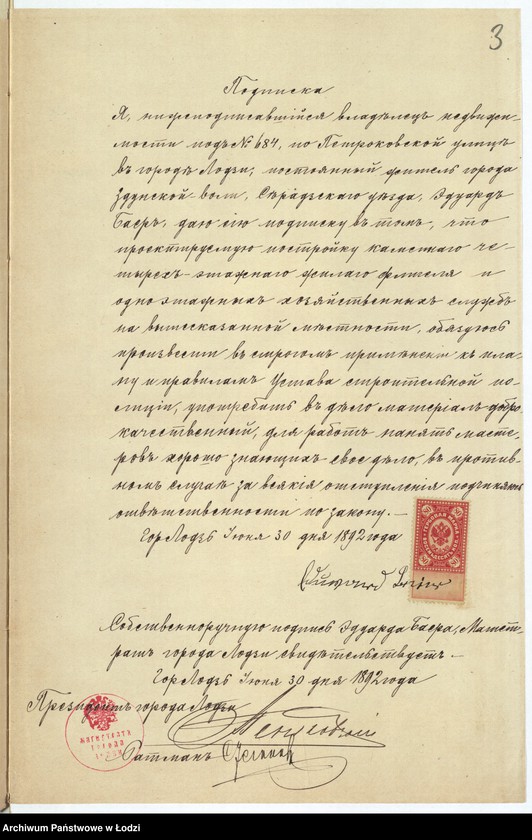 3
Подписка
Я, нижеподписавшійся владѣлецъ недвижи-
мости подъ № 684, по Петроковской улицѣ
въ городѣ Лодзи, постоянный житель города
Здунской воли, Сѣрадзскаго уѣзда, Эдуардъ
Баеръ, даю сію подписку въ томъ, что
проектируемую постройку каменнаго че-
тырехъ-этажнаго жилаго флигеля и
одноэтажныхъ хозяйственныхъ службъ
на вышесказанной мѣстности, обязуюсь
произвести въ строгомъ примѣненіи къ пла-
ну и правиламъ Устава строительной по-
лиціи, употребить въ дѣло матеріалъ добро-
качественный, для работъ нанять масте-
ровъ хорошо знающихъ свое дѣло, въ против-
номъ случаѣ за всякія отступленія подчиняюсь
отвѣтственности по закону. —
Гор Лодзь Іюня 30 дня 1892 года
Eduward
Собственноручную подпись Эдуарда Баера, Магист-
ратъ города Лодзи свидѣтельствуетъ —
Гор Лодзь Іюня 30 дня 1892 года
Президентъ города Лодзи
МАГИСТРАТА
ГОРОДА
Ратманъ
Archiwum Państwowe w Łodzi